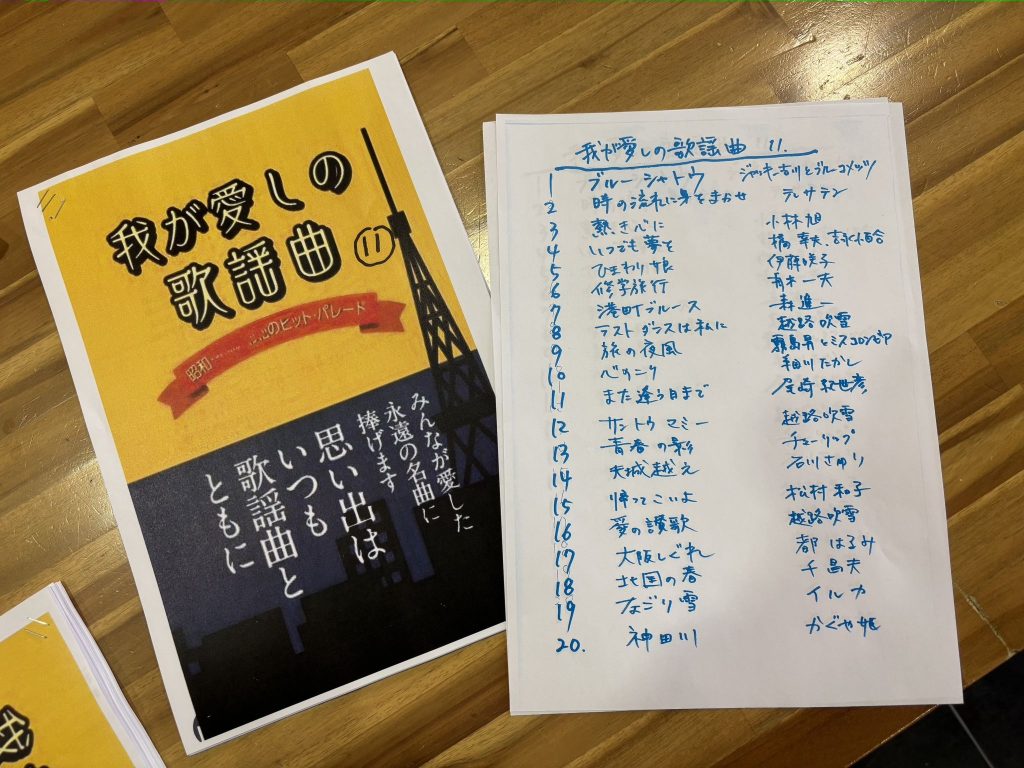 我が愛しの
歌謡曲 ⑪
昭和 心のヒット・パレード
みんなが愛した
永遠の名曲に
捧げます
思い出は
いつも
歌謡曲と
ともに
我が愛しの歌謡曲 11.
1 ブルーシャトウ ジャッキー吉川とブルーコメッツ
2 時の流れに身をまかせ テレサテン
3 熱き心に 小林旭
4 いつでも夢を 橋幸夫、吉永小百合
5 ひまわり娘 伊藤咲子
6 修学旅行 舟木一夫
7 港町ブルース 森進一
8 ラストダンスは私に 越路吹雪
9 旅の夜風 霧島昇とミスコロンビア
10 心のこり 細川たかし
11 また逢う日まで 尾崎紀世彦
12 サントワマミー 越路吹雪
13 青春の影 チューリップ
14 天城越え 石川さゆり
15 帰ってこいよ 松村和子
16 愛の讃歌 越路吹雪
17 大阪しぐれ 都はるみ
18 北国の春 千昌夫
19 なごり雪 イルカ
20. 神田川 かぐや姫
我